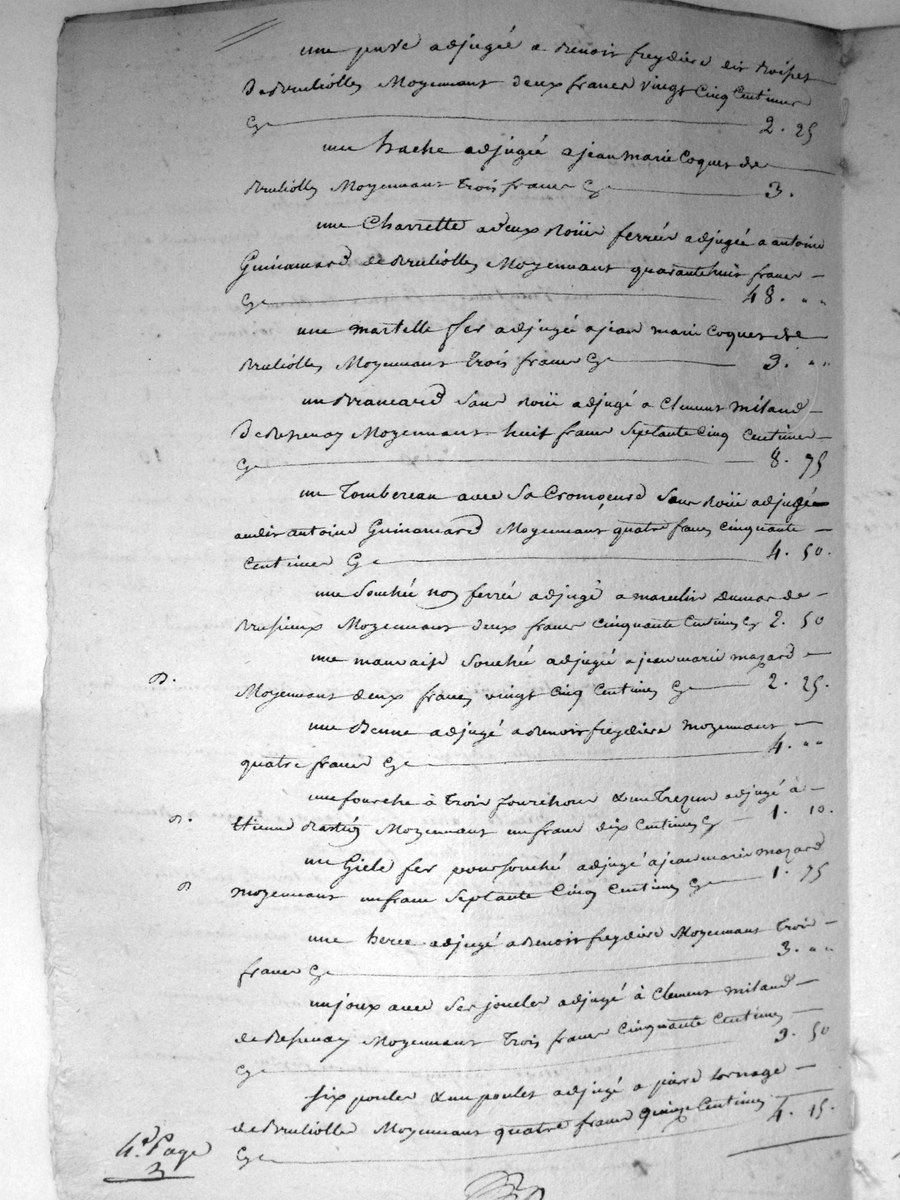 une adjugée a Benoit freydiere dit
de Brulliolles Moyennant deux francs vingt cinq Centimes
Cy 2. 25
une hache adjugée a jean marie Coquet de
Brulliolles Moyennant trois francs Cy 3.
une Charrette a deux Roües ferrées adjugée a antoine
Guinamard de Brulliolles Moyennant quarante huit francs
Cy 48. " "
une martelle fer adjugée a jean marie Coquet de
Brulliolles Moyennant trois francs Cy 3. " "
un Brancard sans Roüe adjugé a Clement Miland
de Bessenay Moyennant huit francs Septante Cinq Centimes
Cy 8. 75
un Tombereau avec Sa sans Roüe adjugée
audit antoine Guinamard Moyennant quatre francs Cinquante
Centimes Cy 4. 50.
une Souchée non ferrée adjugé a Dumas de
Brussieux Moyennant deux francs Cinquante Centimes Cy 2. 50
une mauvaise Souchée adjugée a jean marie mazard
B. Moyennant deux francs vingt Cinq Centimes Cy 2. 25.
une Benne adjugé a Benoit freydiere moyennant
quatre francs Cy 4. " "
une fourche à trois fourchons & un adjugé à
B. Etienne Moyennant un franc dix Centimes Cy 1. 10.
une fer pour Souché adjugé a jean marie mazard
B moyennant un franc Septante Cinq Centimes Cy 1. 75
une herce adjugé a Benoit freydiere Moyennant trois
francs Cy 3. " "
un joux avec Ses adjugé à Clement Miland
de Bessenay Moyennant trois francs Cinquante Centimes
Cy 3. 50
six poules & un poulet adjugé a pierre
de Brulliolles Moyennant quatre francs quinze Centimes
Cy 4. 15.
4e. Page